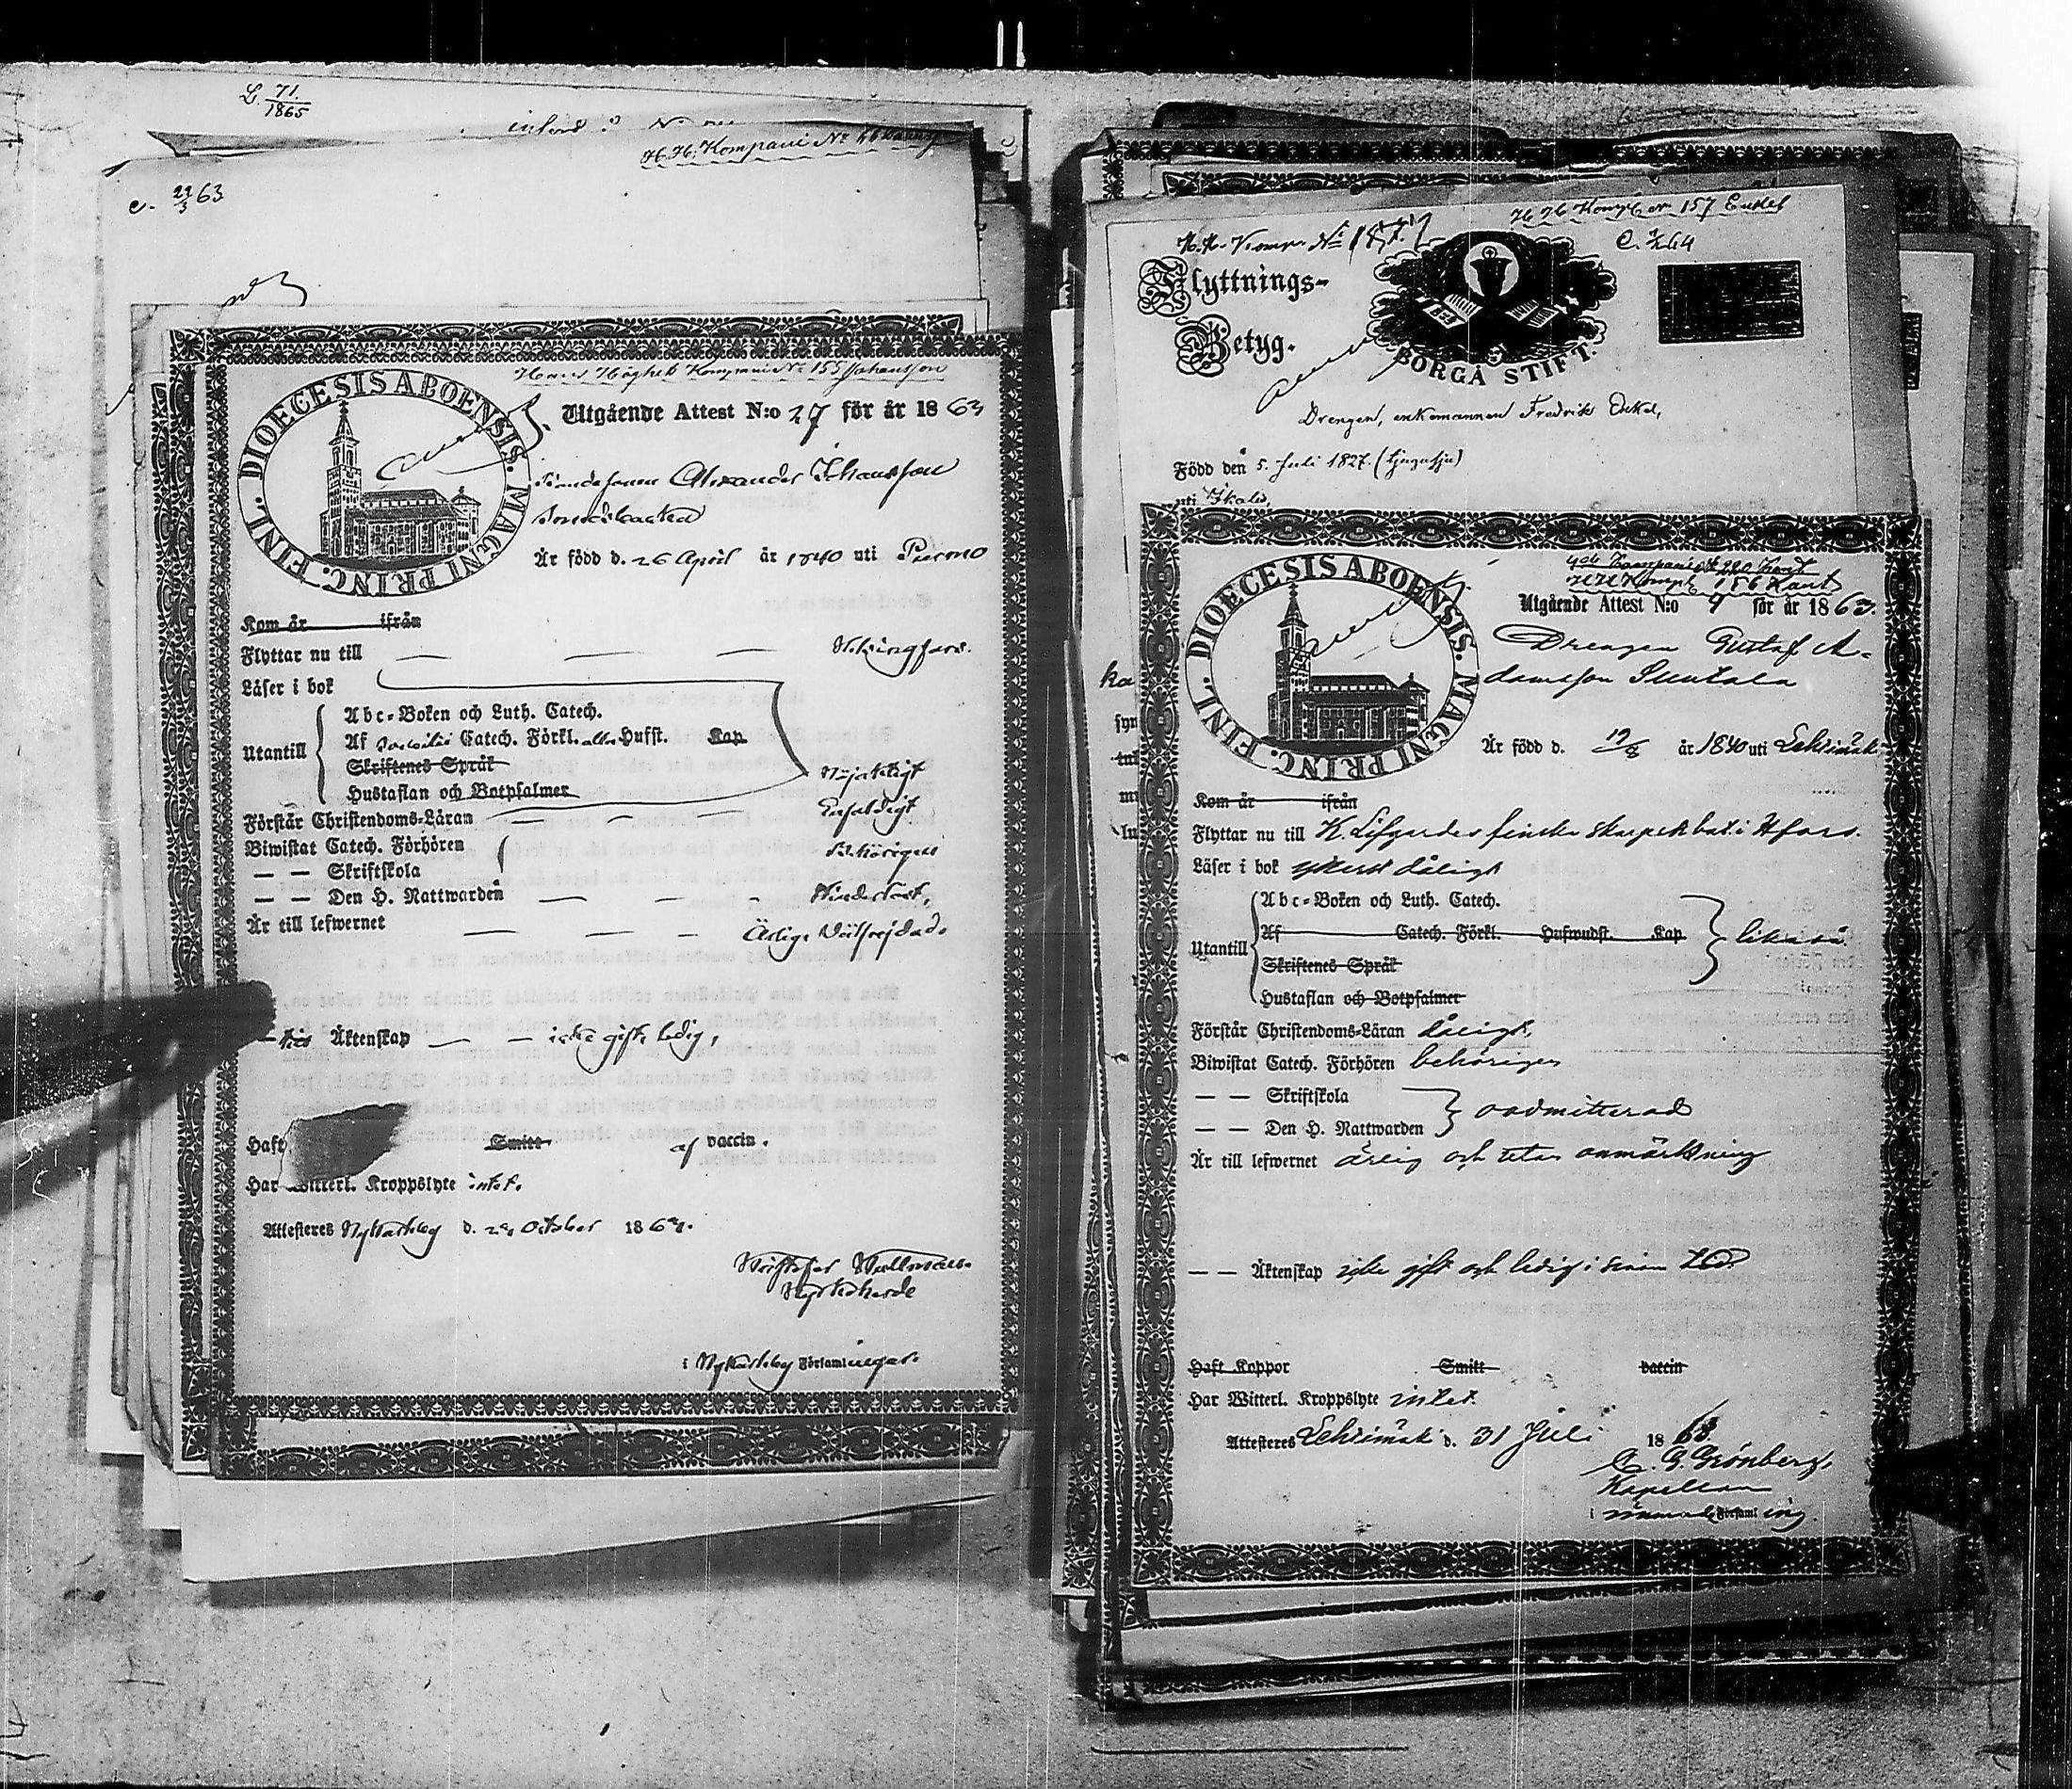 L. 71/1865
H. H. Kompani Nr 66
e. 22/3 63
Hans Höghets Kompani Nr 155 Johansson
DIOECESIS ABOENSIS. MAGNI PRINC. FINL.
Utgående Attest N:o 27 för år 1863
Bondesonen Alexander Johansson
Är född d. 26 April år 1840 uti Purmo
Kom år ifrån
Flyttar nu till — — — Helsingfors.
Läser i bok
Utantill
Abc-Boken och Luth. Catech.
Af Catech. Förkl. alla Hufst. Kap
Skriftenes Språk
Hustaflan och Botpsalmer
Nöjaktigt
Förstår Christendoms-Läran — — — Enfaldigt
Biwistat Catech. Förhören
Behörigen
— — Skriftskola
— — Den H. Nattwarden — — -
Är till lefwernet — — — Ärlig, Välfrejdad.
Äktenskap — — icke gift, ledig,
Haft Smitt af vaccin.
Har Witterl. Kroppslyte intet.
Attesteres Nykarleby d. 29 October 1863.
Kyrkoherde
i Nykarleby Församlingar.
H. H. Komp. Nr 157
H H Komp. nr 157 Enkel
Flyttnings-
Betyg.
BORGÅ STIFT.
Drengen, enkomannen Fredrik Enkel,
Född den 5. Juli 1827. (tjugusju)
uti Ikalis,
H H Komp. 156
DIOECESIS ABOENSIS. MAGNI PRINC. FINL.
Utgående Attest N:o 9 för år 1863.
Drengen Gustaf A-
damsson Suntala
Är född d. 19/8 år 1840 uti Lehtimäki
Kom år ifrån
Flyttar nu till K. Lifgardes finska skarpsk. bat. i Hfors.
Läser i bok ytterst dåligt
Utantill
Abc-Boken och Luth. Catech.
Af Catech. Förkl. Hufwudst. Kap
likaså.
Skriftenes Språk
Hustaflan och Botpsalmer
Förstår Christendoms-Läran dåligt,
Biwistat Catech. Förhören behörigen
— — Skriftskola
oadmitterad
— — Den H. Nattwarden
Är till lefwernet ärlig och utan anmärkning
— — Äktenskap icke gift och ledig i
Haft Koppor Smitt vaccin
Har Witterl. Kroppslyte intet.
Attesteres Lehtimäki d. 31 Juli 1863
C. G. Grönberg,
Kapellan
i Församling.